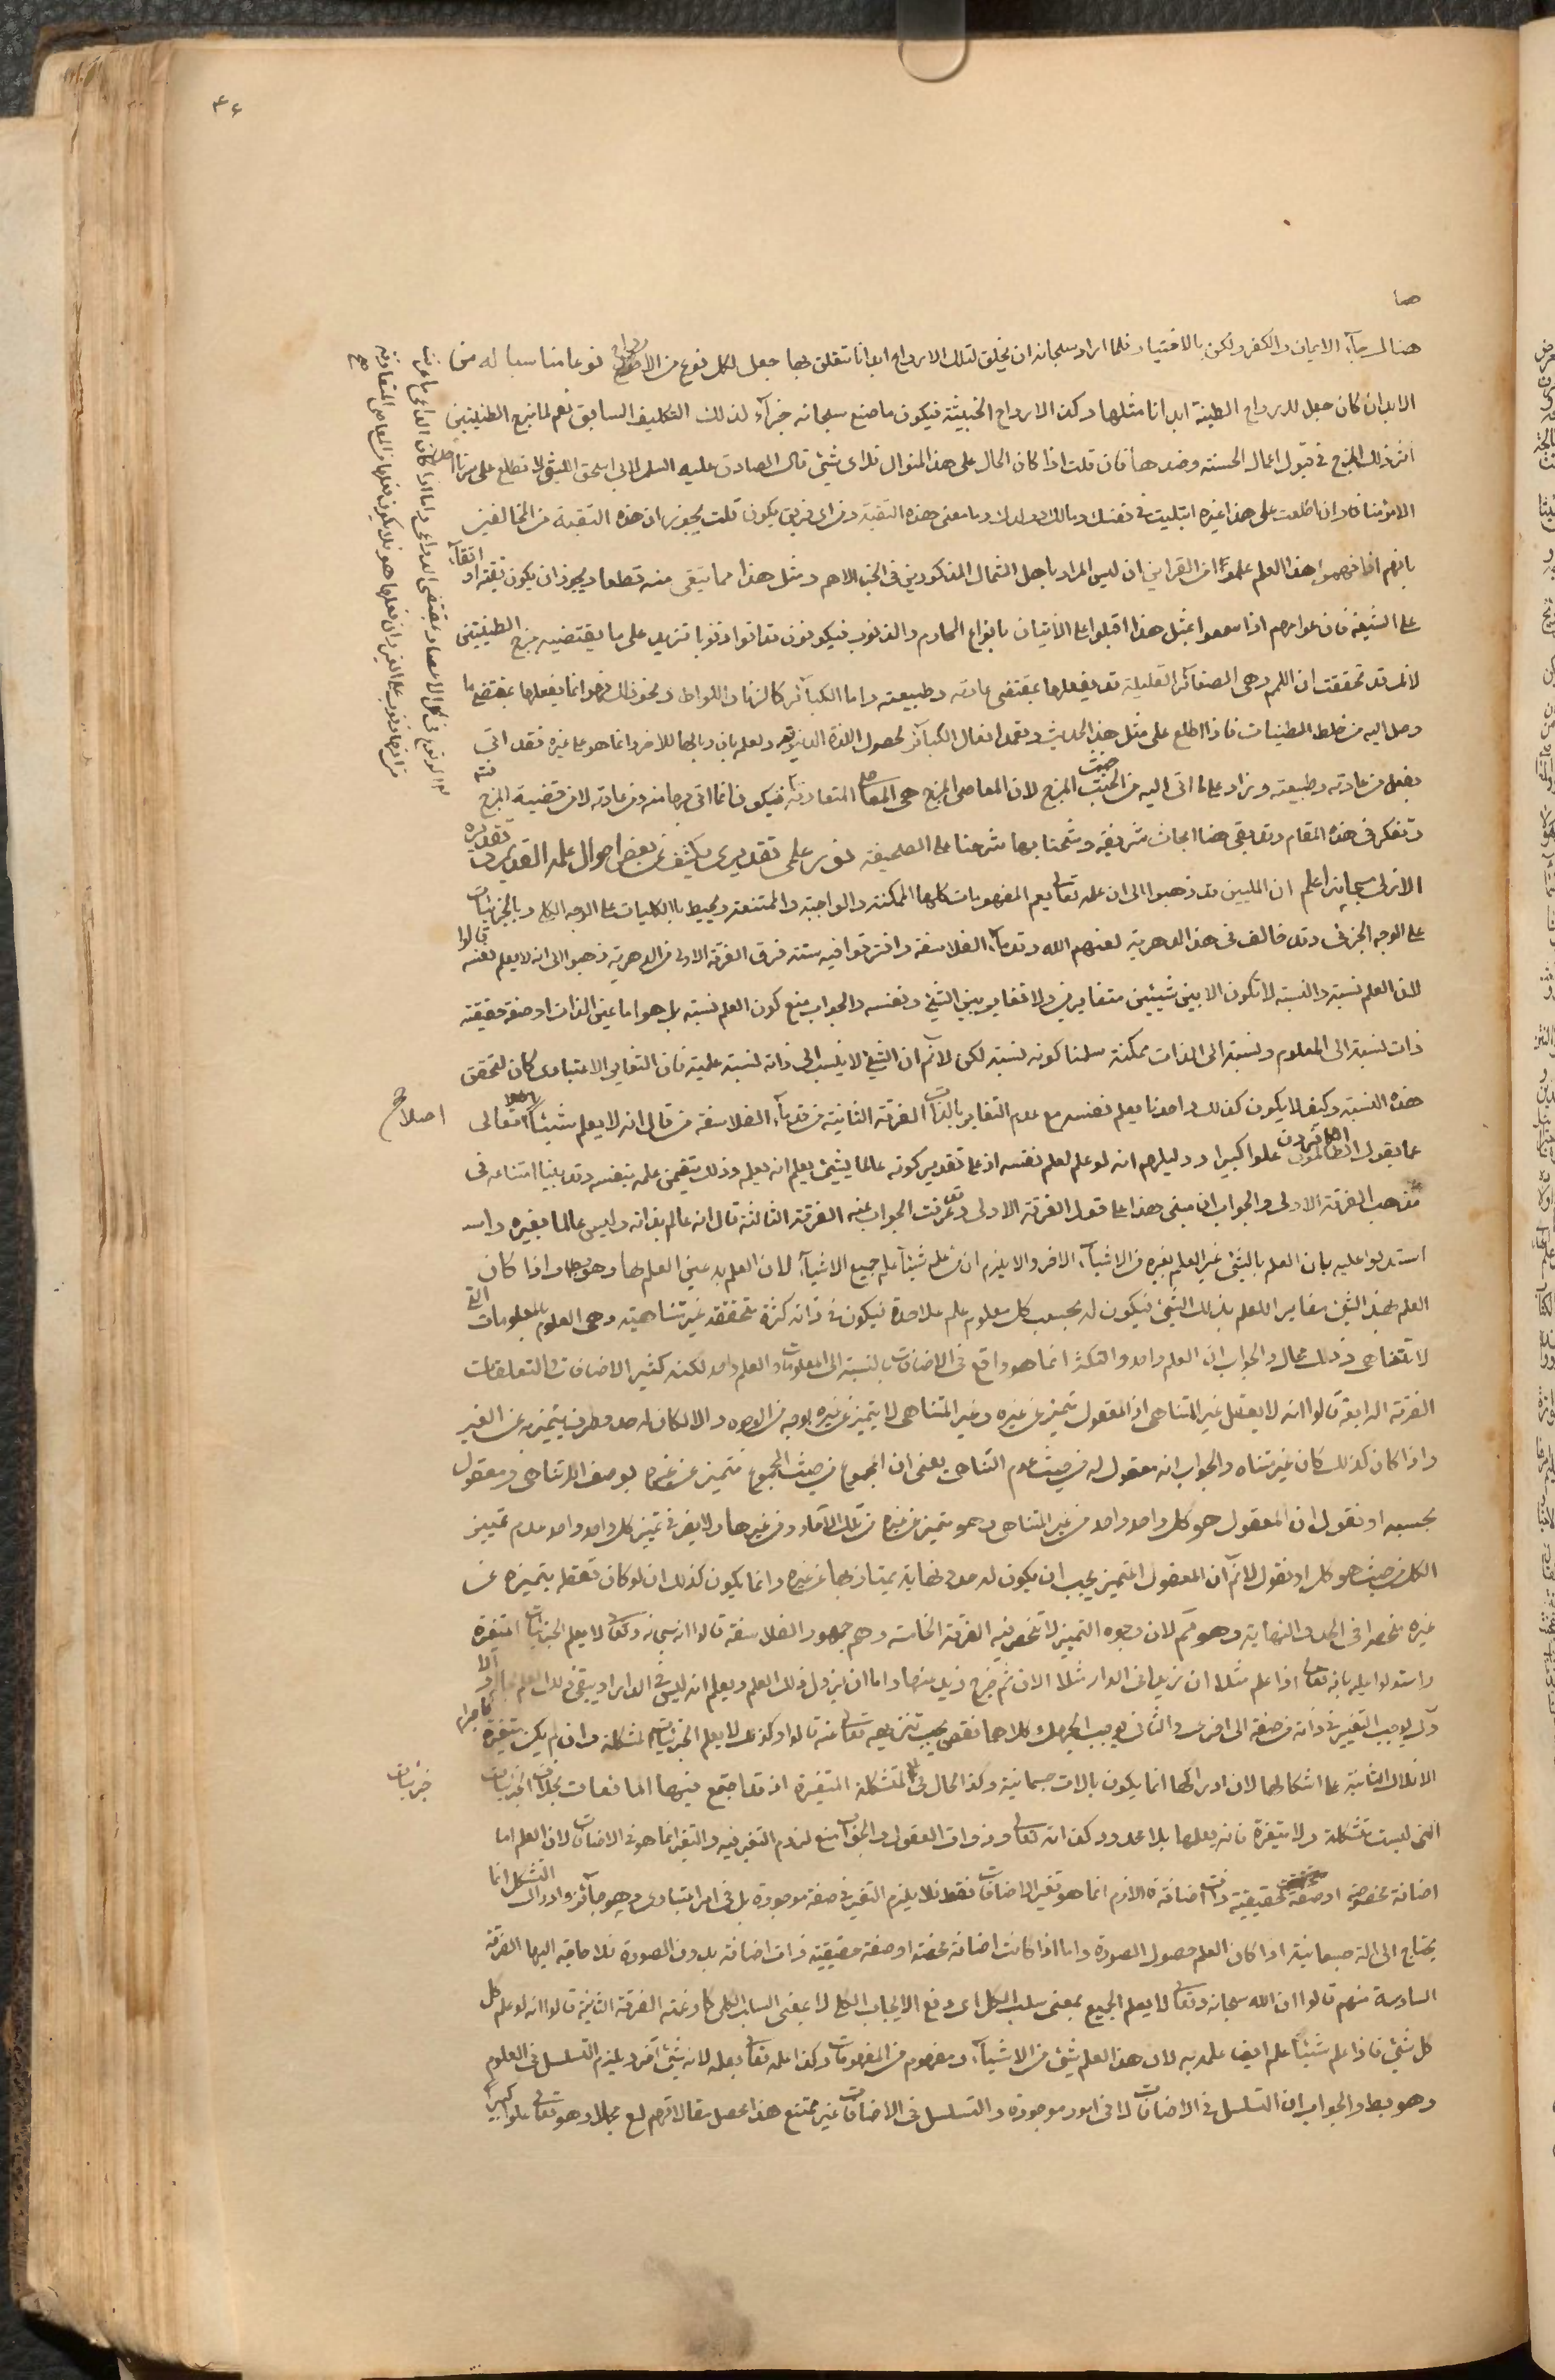 ۴۶
هنالك جاء الايمان والكفر ولكن بالاختيار فلما اراد سبحانه ان يخلق لتلك الارواح ابدانا تتعلق بها جعل لكل نوع من الارواح نوعا مناسبا له من
الابدان كان جعل للارواح الطيبة ابدانا مثلها وكذا الارواح الخبيثة فيكون ما صنع سبحانه جزاء لذلك التكليف السابق نعم لما مزج الطينتين
اثر ذلك المزج في قبول اعمال الحسنة وضدها فان قلت اذا كان الحال على هذا المنوال فلاى شيئ قال الصادق عليه السلم لابي اسحق الليثى لا تطلع على سرنا احدا
الا مؤمنا فان اطلعت على هذا غيره ابتليت في نفسك ومالك وولدك وما معنى هذه التقية ومن اى فريق يكون قلت يجوز ان هذه التقية من المخالفين
بانهم اذا فهموا هذا العلم علموا من القراين ان ليس المراد باهل الشمال المذكورين في الخبر الا هم ومثل هذا مما يتقى منه قطعا ويجوز ان يكون تقية او اتقاء
على الشيعة فان عوامهم اذا سمعوا بمثل هذا اقبلوا على الاتيان بانواع المحارم والذنوب فيكونون قد اتوا ذنوبا تزيد على ما يقتضيه مزج الطينتين
لانك قد تحققت ان اللمم وهى الصغائر القليلة قد يفعلها بمقتضى عادته وطبيعته واما الكبائر كالزنا واللواط ونحو ذلك فهو انما يفعلها بمقتضى ما
وصل اليه من خلط الطينات فاذا اطلع على مثل هذا الحديث وتعمد افعال الكبائر لحصول اللذة الدنيوية ولعلمه بان وبالها للاخر وانما هو على غيره فقد اتى
بفعل من عادته وطبيعته وزاد على ما اتى اليه من الخبث المزج لان المعاصى المزج هى المعاصى المتعارفة فيكون انما اتى بها منه ومن عادته لا من قضية المزج
وتفكر في هذه المقام وقد بقى هنا ابحاث شريفة وشحنا بها شرحنا على الصحيفة نور علمى تقديرى يكشف عن بعض احوال علمه القديرى تقديره
الازلى سبحانه اعلم ان المليين قد ذهبوا الى ان علمه تعالى يعم المفهومات كلها الممكنة والواجبة والممتنعة ويحيط بالكليات على الوجه الكلى وبالجزئيات
على الوجه الجزئى وقد خالف في هذا الدهرية لعنهم الله وقدماء الفلاسفة وافترقوا فيه ستة فرق الفرقة الاولى من الدهرية ذهبوا الى انه لا يعلم نفسه قالوا
لان العلم نسبة والنسبة لا تكون الا بين شيئين متغايرين ولا تغاير بين الشيئ ونفسه والجواب منع كون العلم نسبة بل هو اما عين الذات او صفة حقيقة
ذات نسبة الى المعلوم ونسبته الى الذات ممكنة سلمنا كونه نسبة لكن لا نم ان الشيئ لا ينسب الى ذاته نسبة علمية فان التغاير الاعتبارى كاف لتحقق
هذه النسبة وكيف لا يكون كذلك واحدنا يعلم نفسه مع عدم التغاير بالذات الفرقة الثانية من قدماء الفلاسفة من قال انه لا يعلم شيئا تعالى
عما يقول الظالمون علوا كبيرا ودليلهم انه لو علم لعلم نفسه اذ على تقدير كونه عالما بشيئ يعلم انه يعلمه وذلك يتضمن علمه بنفسه وقد بينا امتناعه في
مذهب الفرقة الاولى والجواب ان مبنى هذا على قول الفرقة الاولى وقد عرفت الجواب عنه الفرقة الثالثة قال انه عالم بذاته وليس عالما بغيره
استدلوا عليه بان العلم بالشيئ غير العلم بغيره من الاشياء الاخر والا يلزم ان من علم شيئا علم جميع الاشياء لان العلم به عين العلم بها وهو بط واذا كان
العلم بهذا الشيئ مغاير للعلم بذلك الشيئ فيكون له بحسب كل معلوم علم على حدة فيكون في ذاته كثرة متحققة غير متناهية وهى العلوم بالمعلومات التى
لا تتناهى وذلك محال والجواب ان العلم واحد والتكثر انما هو واقع في الاضافات بالنسبة الى المعلومات والعلم واحد لكنه كثير الاضافات والتعلقات
الفرقة الرابعة قالوا انه لا يعقل غير المتناهى اذ المعقول متميز عن غيره وغير المتناهى لا يتميز عن غيره بوجه من الوجوه والا لكان له حد وطرف يتميز به عن الغير
واذا كان كذلك كان غير متناه والجواب انه معقول له من حيث عدم التناهى يعنى ان المجموع من حيث المجموع متميز عن غيره بوصف اللاتناهى ومعقول
بحسبه او نقول ان المعقول هو كل واحد واحد من غير المتناهى وهو متميز عن غيره من تلك الآحاد ومن غيرها ولا يضر في تميز كل واحد واحد عدم تمييز
الكل من حيث هو كل او نقول لا نم ان المعقول المتميز يجب ان يكون له حد ونهاية يمتاز بها عن غيره وانما يكون كذلك ان لو كان تعقله بتميزه عن
غيره منحصرا في الحد والنهاية وهو مم لان وجوه التمييز لا تنحصر فيه الفرقة الخامسة وهم جمهور الفلاسفة قالوا انه سبحانه وتعالى لا يعلم الجزئيات المتغيرة
واستدلوا عليه بانه تعالى اذا علم مثلا ان زيدا في الدار مثلا الان ثم خرج زيد منها فاما ان يزول ذلك العلم ويعلم انه ليس في الدار او يبقى ذلك العلم بحاله والاول
يوجب التغيير في ذاته من صفة الى اخرى والثانى يوجب الجهل وكلاهما نقص يجب تنزيهه تعالى عنه قالوا وكذلك لا يعلم الجزئيات المشكلة وان لم يكن متغيرة كاجرام
الافلاك الثابتة على اشكالها لان ادراكها انما يكون بالات جسمانية وكذا الحال في المتشكلة المتغيرة اذ قد اجتمع فيها المانعات بخلاف الجزئيات
التى ليست متشكلة ولا متغيرة فانه يعلمها بلا محذور كذاته تعالى وذوات العقول والجواب منع لزوم التغير فيه والتغير انما هو في الاضافات لان العلم اما
اضافة مخصوصة او صفة حقيقية ذات اضافة فاللازم انما هو تغير الاضافات فقط فلا يلزم التغير في صفة موجودة بل في امر اعتبارى وهو جائز وادراك التشكل انما
يحتاج الى الة جسمانية اذا كان العلم حصول الصورة واما اذا كانت اضافة محضة او صفة حقيقية ذات اضافة بدون الصورة فلا حاجة اليها الفرقة
السادسة منهم قالوا ان الله سبحانه وتعالى لا يعلم الجميع بمعنى سلب الكل اى رفع الايجاب الكلى لا بمعنى السلب الكلى كما زعمته الفرقة الثانية قالوا انه لو علم كل
كل شيئ فاذا علم شيئا علم ايضا علمه به لان هذا العلم شيئ من الاشياء ومفهوم من المفهومات وكذا علمه تعالى بعلمه لانه شيئ آخر ويلزم التسلسل في العلوم
وهو بط والجواب ان التسلسل في الاضافات لا في امور موجودة والتسلسل في الاضافات غير ممتنع هذا محصل مقالاتهم لع مجملا وهو تعالى علوا كبيرا
اصلاح
جزئيات